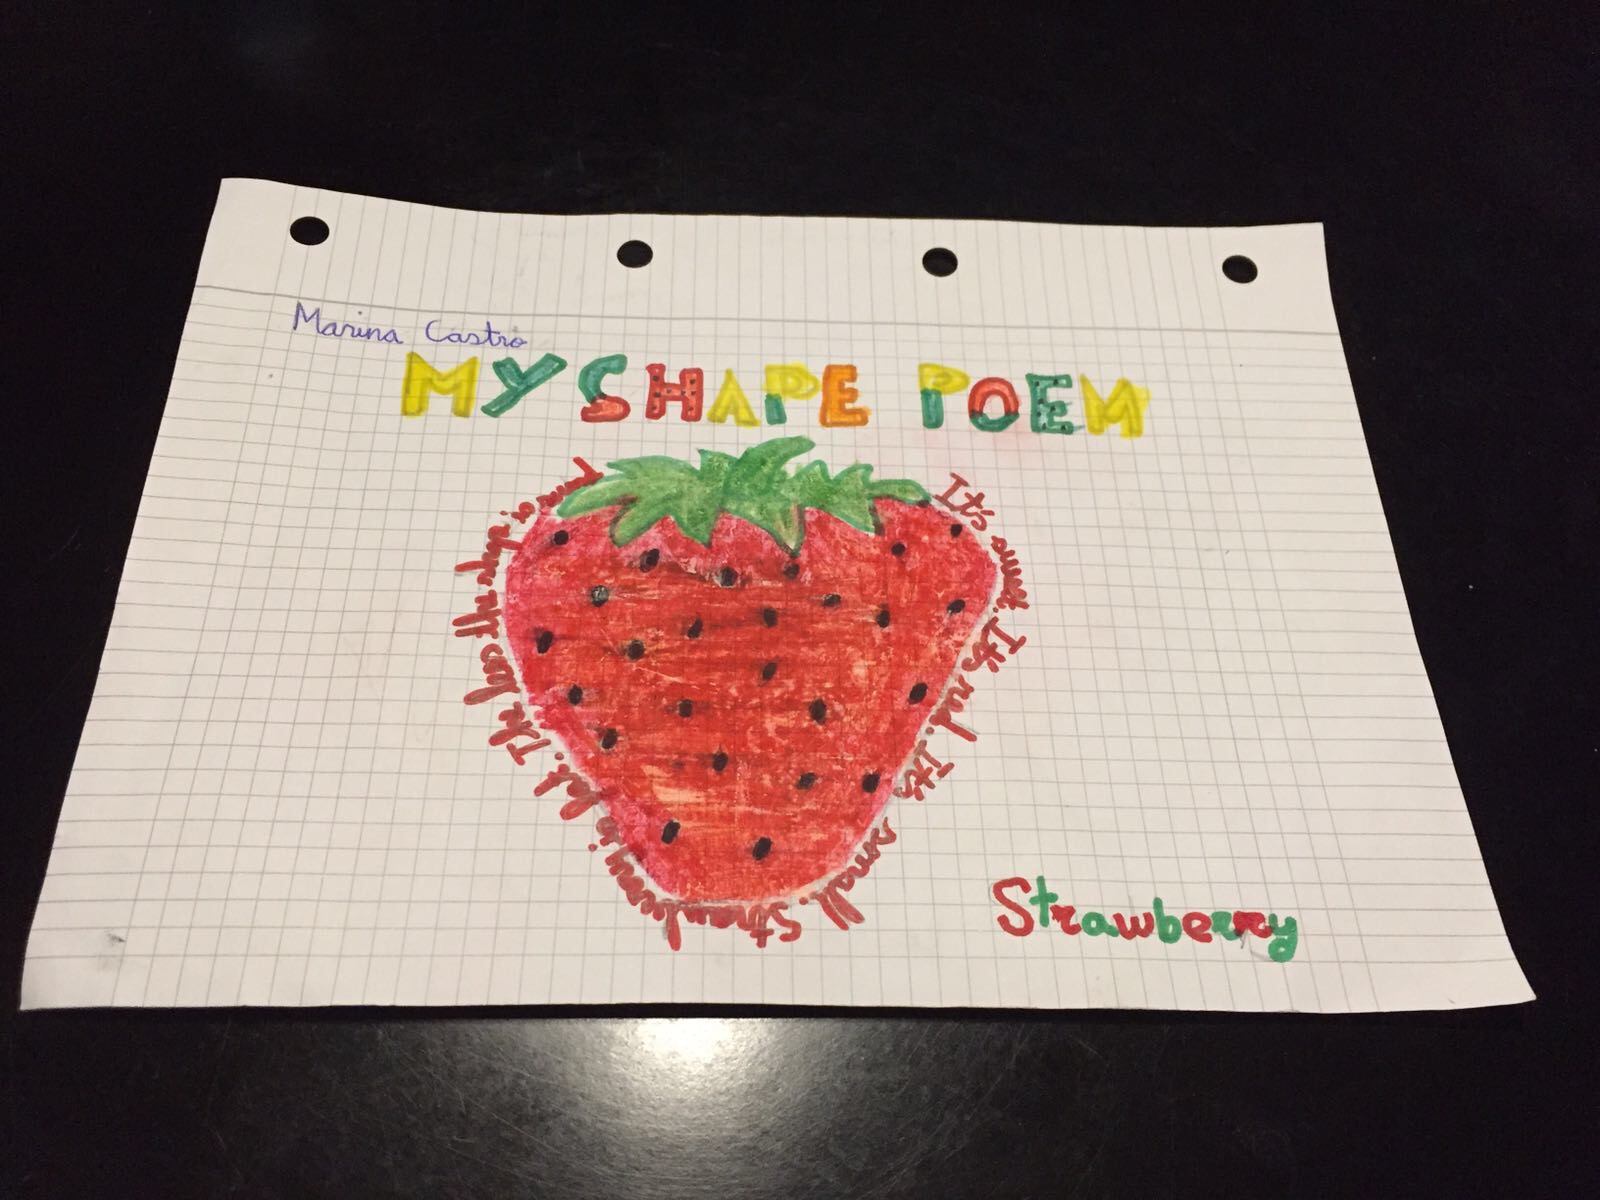 Marina Castro
MY SHAPE POEM
It's sweet. It's red. It's small. Strawberry is fat.
Strawberry